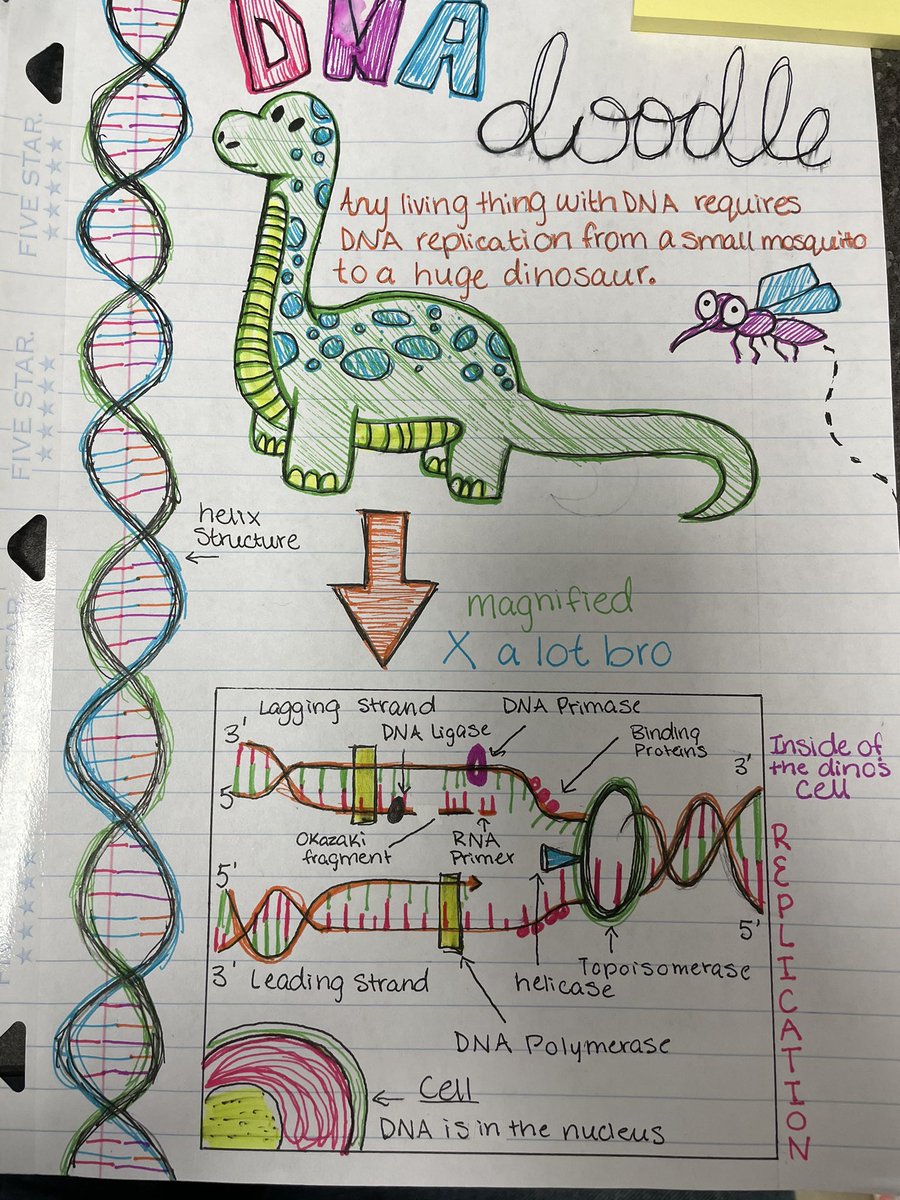 DNA
doodle
Any living thing with DNA requires
DNA replication from a small mosquito
to a huge dinosaur.
FIVE STAR.
FIVE STAR.
helix
structure
magnified
X a lot bro
Lagging Strand
DNA Primase
DNA Ligase
Binding
Proteins
3'
5'
3'
Okazaki
fragment
RNA
Primer
Inside of
the dino's
cell
5'
3'
5'
Leading Strand
helicase
Topoisomerase
DNA Polymerase
REPLICATION
Cell
DNA is in the nucleus